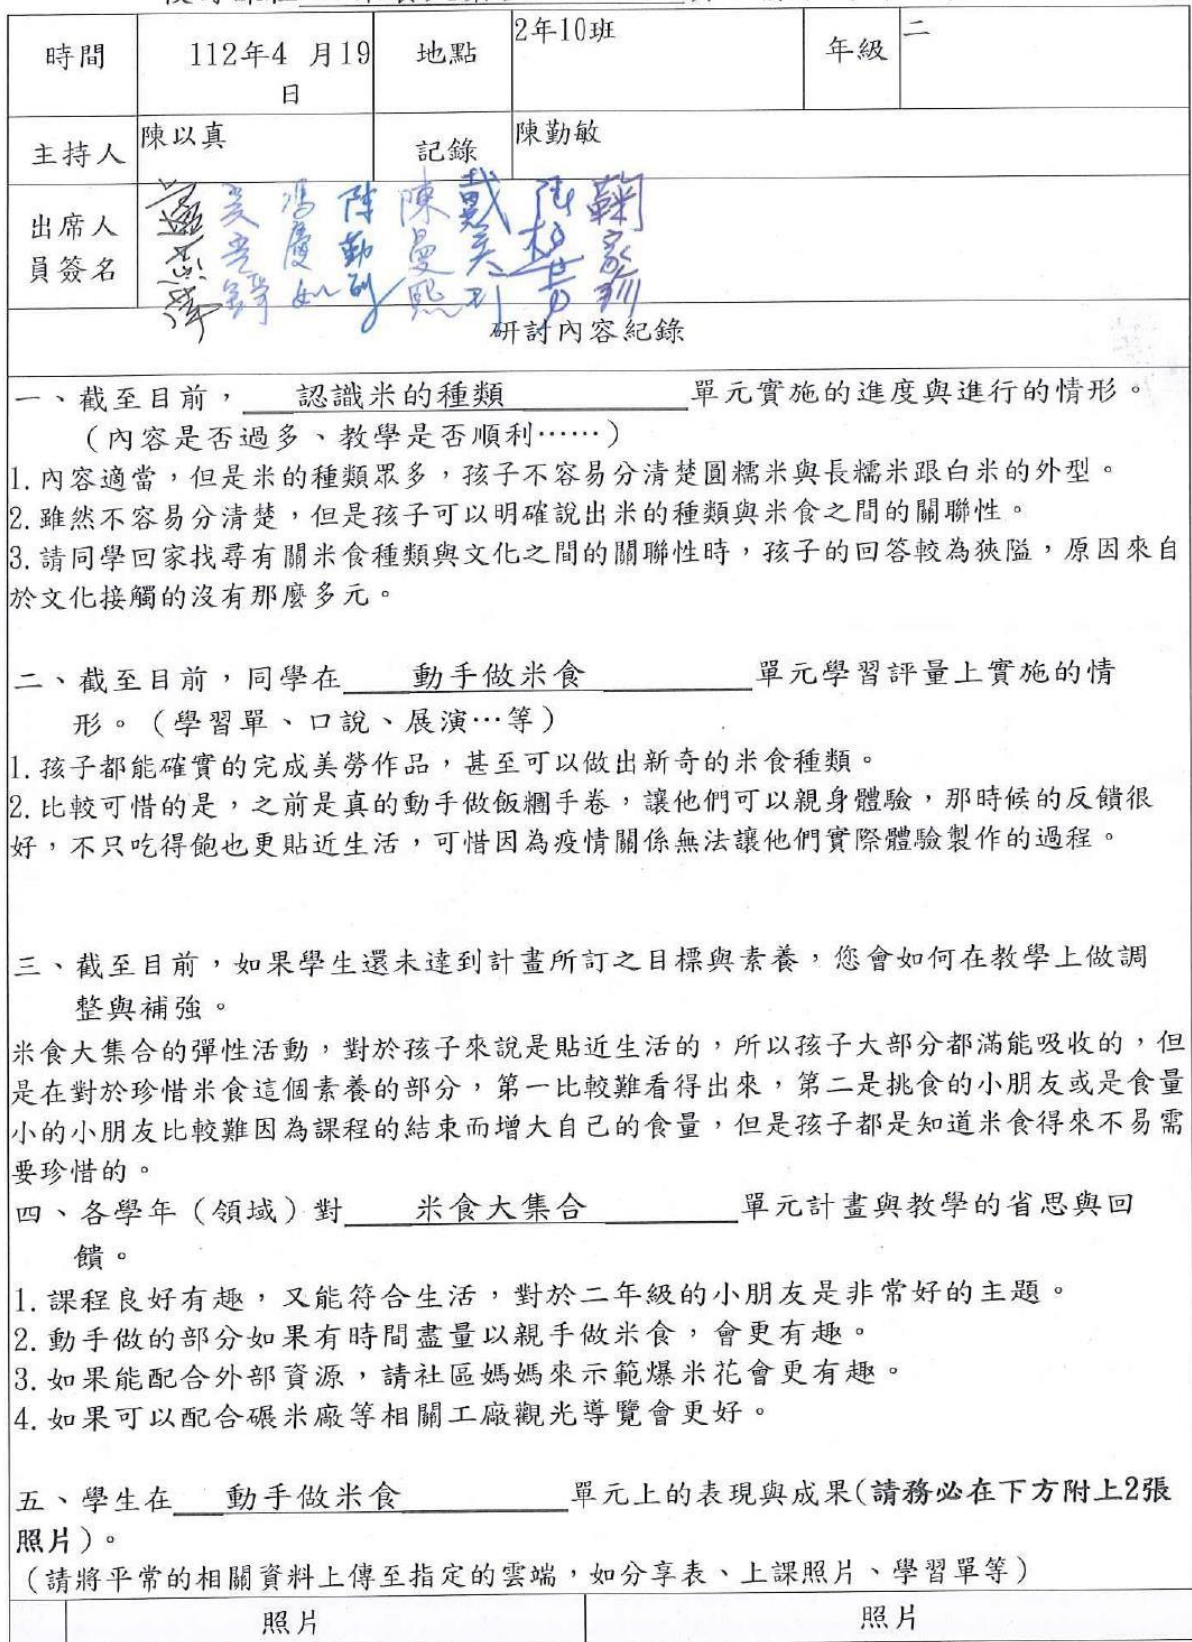 時間
112年4 月19
日
地點
2年10班
年級
二
主持人
陳以真
記錄
陳勤敏
出席人
員簽名
研討內容紀錄
一、截至目前，認識米的種類單元實施的進度與進行的情形。
（內容是否過多、教學是否順利……）
1.內容適當，但是米的種類眾多，孩子不容易分清楚圓糯米與長糯米跟白米的外型。
2.雖然不容易分清楚，但是孩子可以明確說出米的種類與米食之間的關聯性。
3.請同學回家找尋有關米食種類與文化之間的關聯性時，孩子的回答較為狹隘，原因來自
於文化接觸的沒有那麼多元。
二、截至目前，同學在動手做米食單元學習評量上實施的情
形。（學習單、口說、展演…等）
1.孩子都能確實的完成美勞作品，甚至可以做出新奇的米食種類。
2.比較可惜的是，之前是真的動手做飯糰手卷，讓他們可以親身體驗，那時候的反饋很
好，不只吃得飽也更貼近生活，可惜因為疫情關係無法讓他們實際體驗製作的過程。
三、截至目前，如果學生還未達到計畫所訂之目標與素養，您會如何在教學上做調
整與補強。
米食大集合的彈性活動，對於孩子來說是貼近生活的，所以孩子大部分都滿能吸收的，但
是在對於珍惜米食這個素養的部分，第一比較難看得出來，第二是挑食的小朋友或是食量
小的小朋友比較難因為課程的結束而增大自己的食量，但是孩子都是知道米食得來不易需
要珍惜的。
四、各學年（領域）對米食大集合單元計畫與教學的省思與回
饋。
1.課程良好有趣，又能符合生活，對於二年級的小朋友是非常好的主題。
2.動手做的部分如果有時間盡量以親手做米食，會更有趣。
3.如果能配合外部資源，請社區媽媽來示範爆米花會更有趣。
4.如果可以配合碾米廠等相關工廠觀光導覽會更好。
五、學生在動手做米食單元上的表現與成果(請務必在下方附上2張
照片)。
（請將平常的相關資料上傳至指定的雲端，如分享表、上課照片、學習單等）
照片
照片